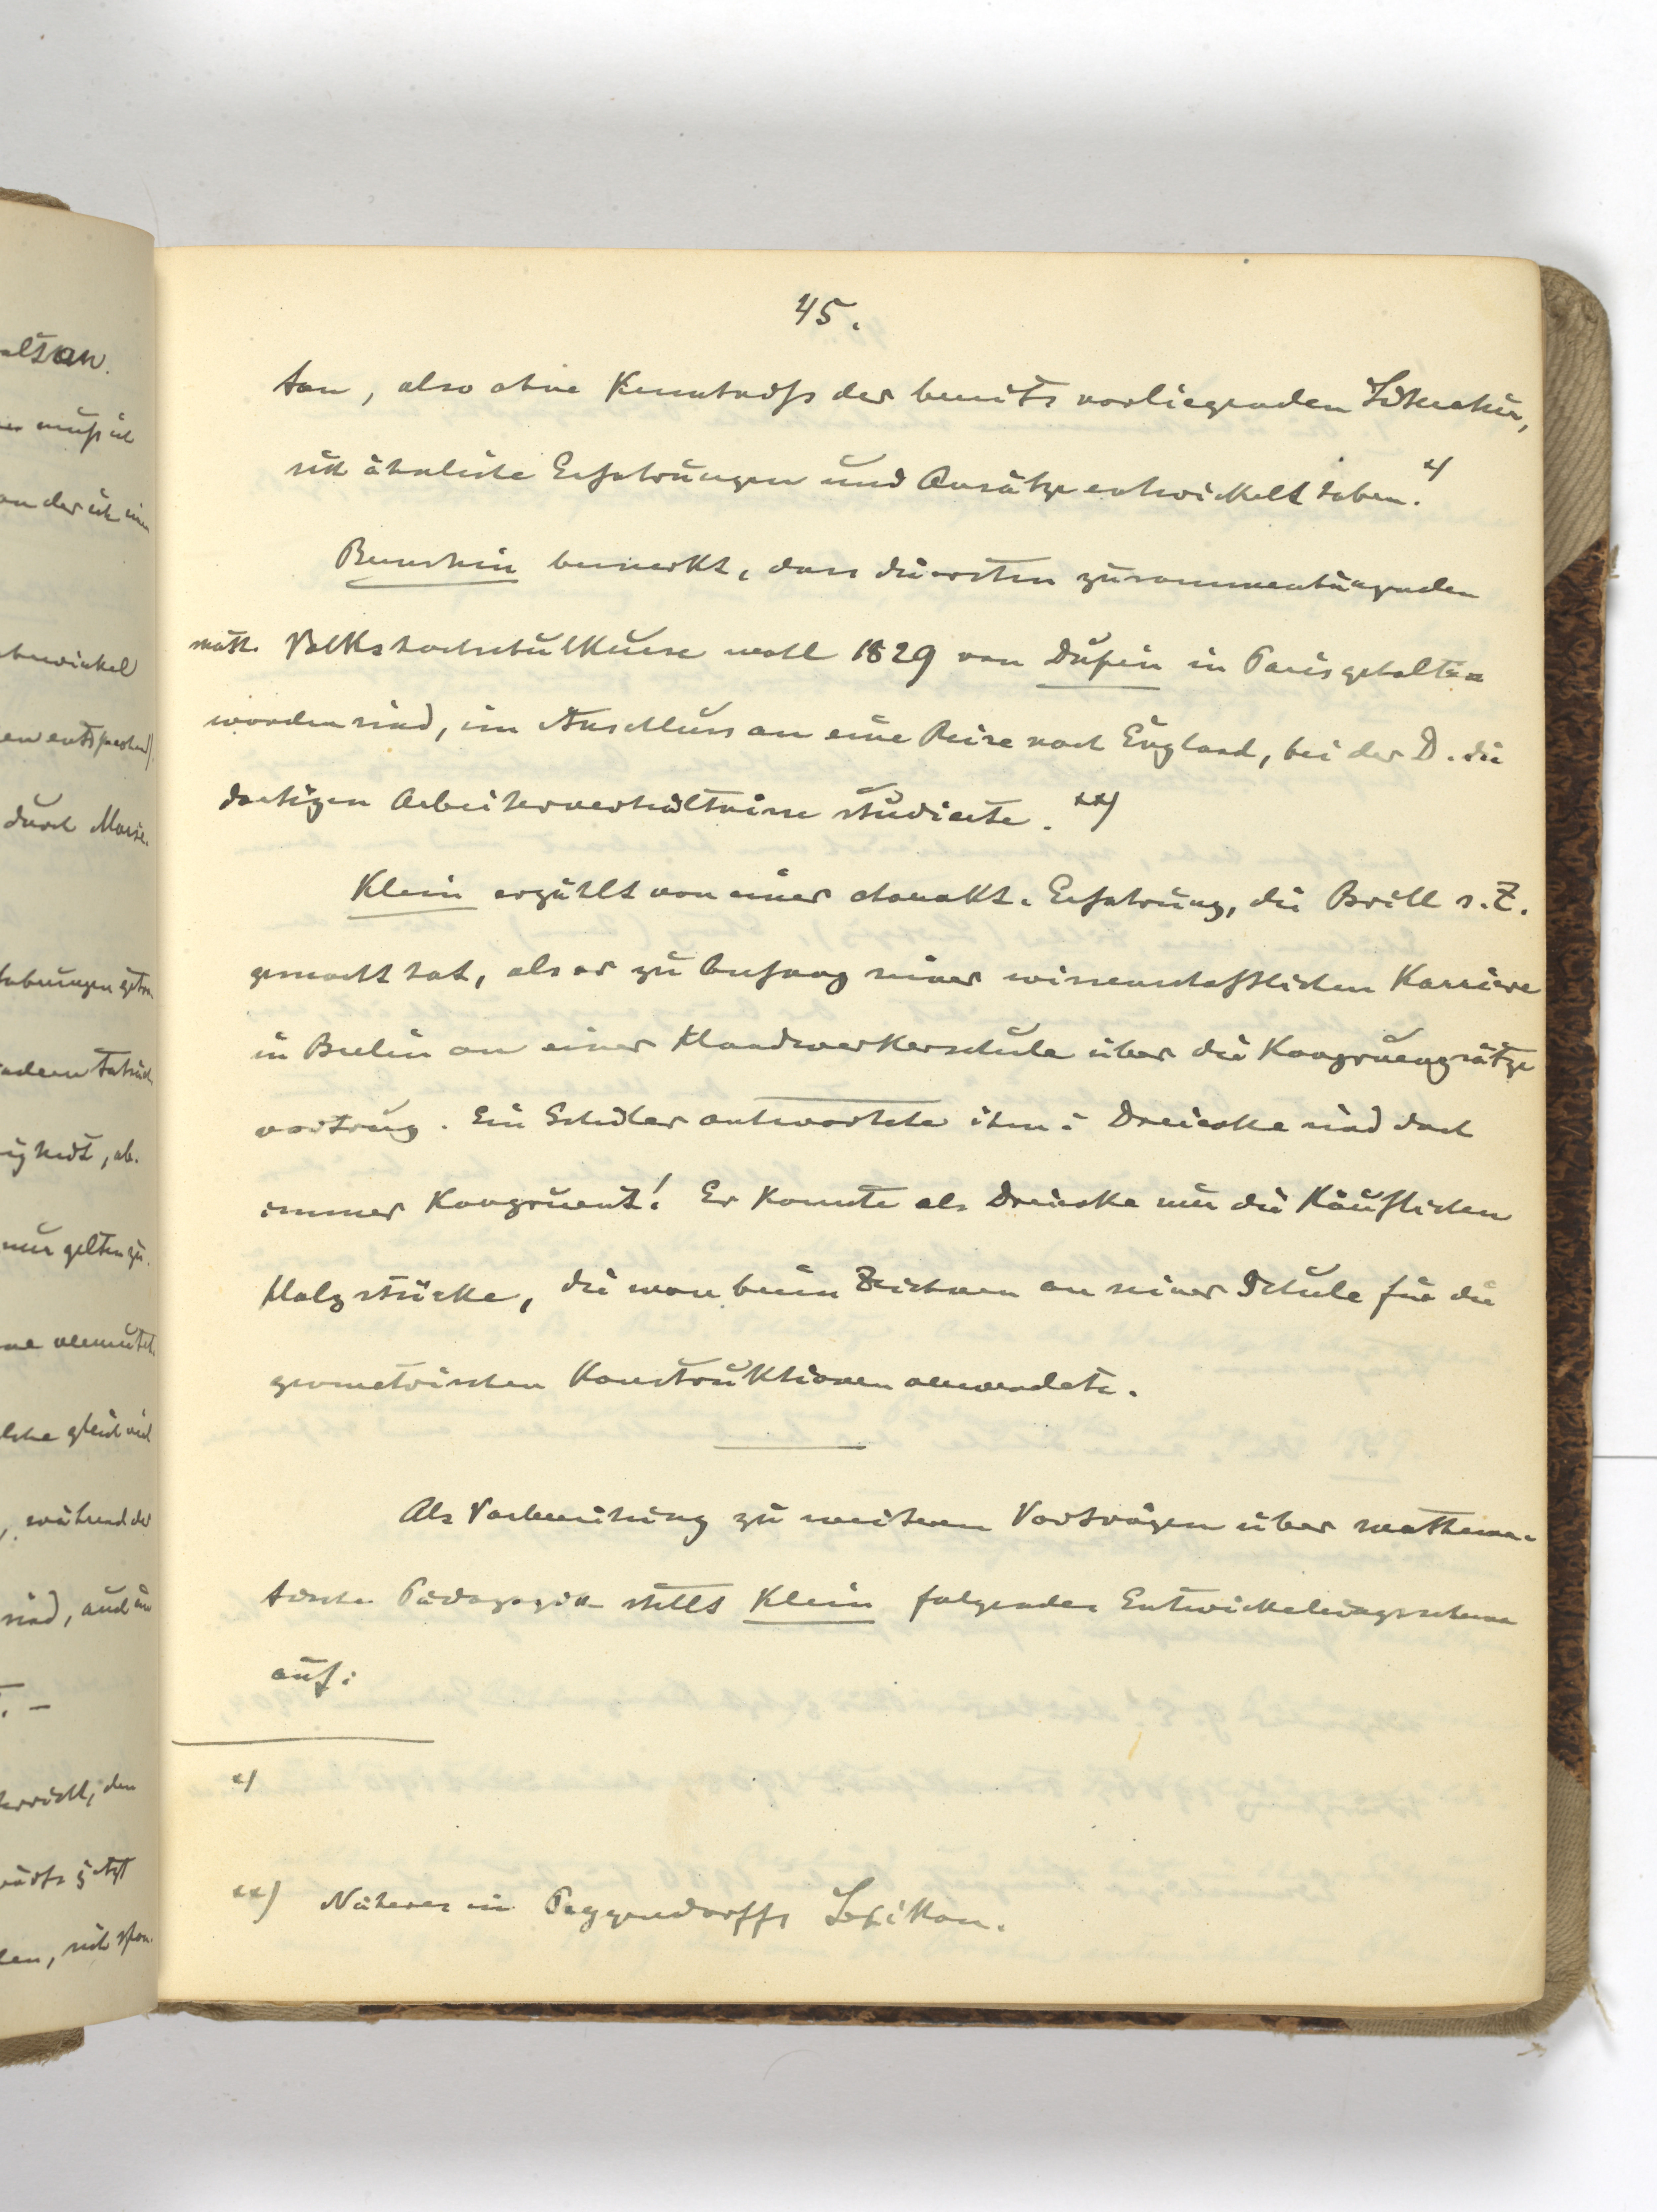 45.
tan, also ohne Kenntniss der bereits vorliegenden Literatur,
sich ähnliche Erfahrungen und Ansätze entwickelt haben.*)
Bernstein bemerkt, dass die ersten zusammenhängenden
math. Volkshochschulkurse wohl 1829 von Dupin in Paris gehalten
worden sind, im Anschluss an eine Reise nach England, bei der D. die
dortigen Arbeiterverhältnisse studierte. **)
Klein erzählt von einer charakt. Erfahrung, die Brill s. Z.
gemacht hat, als er zu Anfang seiner wissenschaftlichen Karriere
in Berlin an einer Handwerkerschule über die Kongruenzsätze
vortrug. Ein Schüler antwortete ihm: Dreiecke sind doch
immer kongruent! Er konnte als Dreiecke nur die käuflichen
Holzstücke, die man beim Zeichnen an seiner Schule für die
geometrischen Konstruktionen verwendete.
Als Vorbereitung zu weiteren Vorträgen über mathema-
tische Pädagogik stellt Klein folgendes Entwickelungsschema
auf:
*)
**) Näheres in Poggendorffs Lexikon.